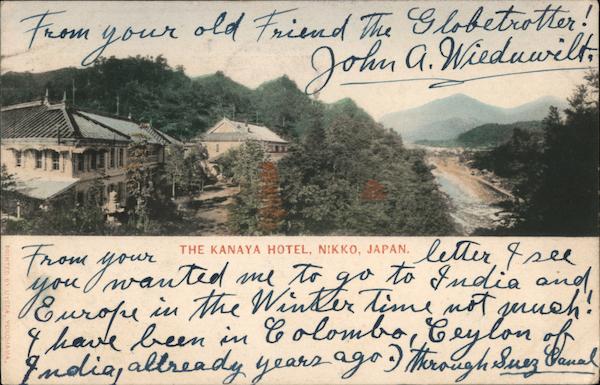 From your old Friend The Globetrotter!
John A. Wieduwilt.
THE KANAYA HOTEL, NIKKO, JAPAN.
From your letter I see
you wanted me to go to India and
Europe in the Winter time not much!
I have been in Colombo, Ceylon of
India, allready years ago.) through Suez Canal